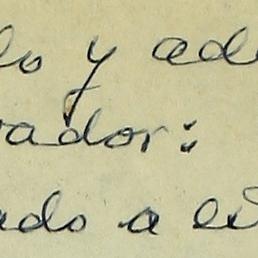 do y ad
vador:
ado a